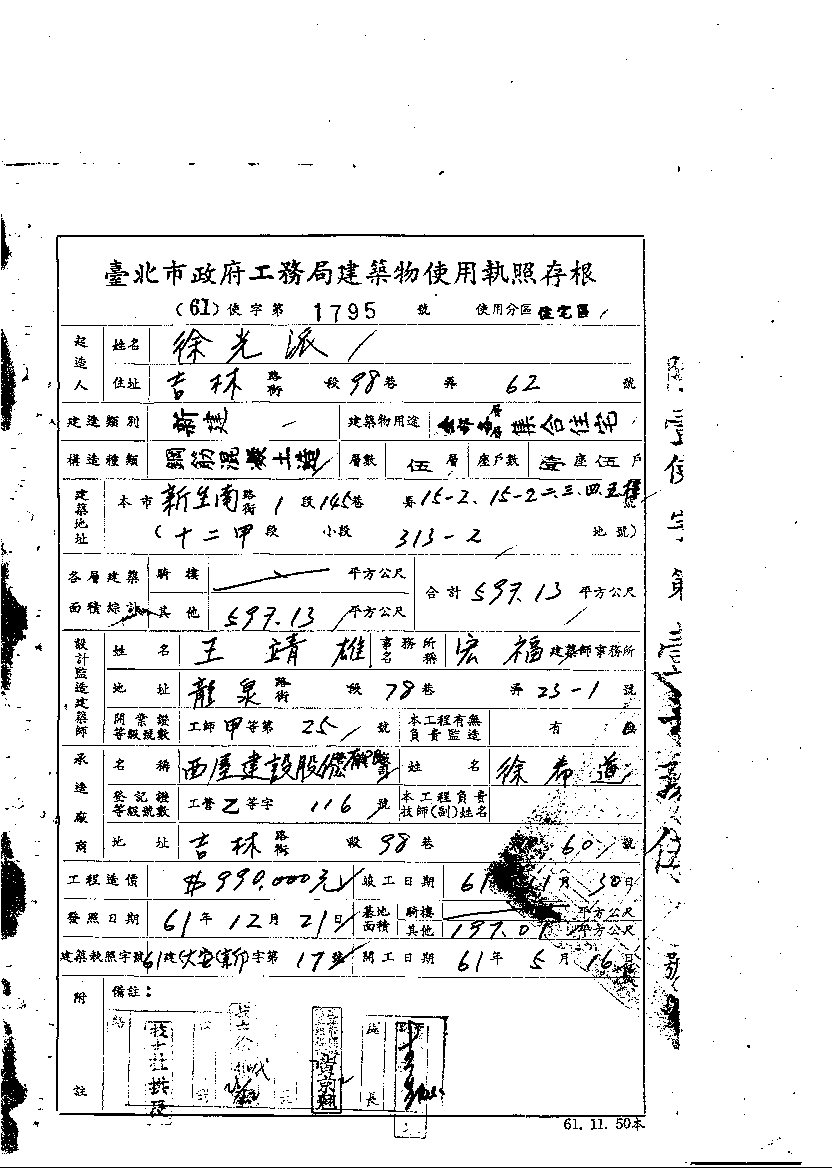 臺北市政府工務局建築物使用執照存根
(61)使字第 1795 號 使用分區 住宅區
起造人 姓名 徐光派
住址 吉林 路街 段 98 巷 弄 62 號
建造類別 新建 建築物用途 集合住宅
構造種類 鋼筋混凝土造 層數 伍 層 座戶數 壹 座 伍 戶
建築地址 本市 新生南 路街 1 段 145 巷 弄 15-2、15-2二、三、四、五樓 號
(十二甲 段 小段 313-2 地號)
各層建築面積綜計 騎樓 平方公尺 合計 597.13 平方公尺
其他 597.13 平方公尺
設計監造建築師 姓名 王靖雄 事務所名稱 宏福 建築師事務所
地址 龍泉 路街 段 78 巷 弄 23-1 號
開業證等級號數 工師 甲 等第 25 號 本工程有無負責監造 有
承造廠商 名稱 西屋建設股份 姓名 徐希道
登記證等級號數 工營 乙 等字 116 號 本工程負責技師(副)姓名
地址 吉林 路街 段 98 巷 60 號
工程造價 $990,000元 竣工日期 61 11 月 30 日
發照日期 61 年 12 月 21 日 基地面積 騎樓 平方公尺
其他 197.01 平方公尺
建築執照字號 61建(大安)(新)字第 17 號 開工日期 61 年 5 月 16 日
附註 備註:
技士杜
賀京
長
61. 11. 50本